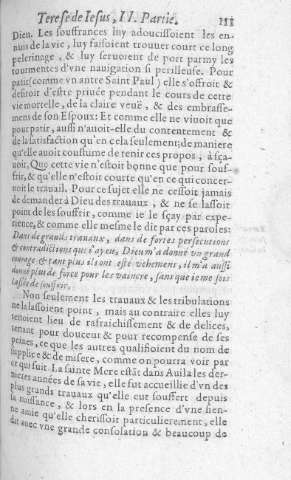 Terese de Iesus, II. Partie.
Dieu. Les souffrances luy adoucissoient les en-
nuis de la vie, luy faisoient trouuer court ce long
pelerinage, & luy seruoient de port parmy les
tourmentes d'vne nauigation si perilleuse. Pour
patir (comme vn autre Saint Paul) elle s'offroit &
desiroit d'estre priuée pendant le cours de cette
vie mortelle, de la claire veuë, & des embrasse-
mens de son Espoux: Et comme elle ne viuoit que
pour patir, aussi n'auoit-elle du contentement &
de la satisfaction qu'en cela seulement; de maniere
qu'elle auoit coustume de tenir ces propos, à sça-
uoir, Que cette vie n'estoit bonne que pour souf-
frir, & qu'elle n'estoit courte qu'en ce qui concer-
noit le trauail. Pour ce sujet elle ne cessoit jamais
de demander à Dieu des trauaux, & ne se lassoit
point de les souffrir, comme ie le sçay par expe-
rience, & comme elle mesme le dit par ces paroles:
Dans de grands trauaux, dans de fortes persecutions
& contradictions que i'ay eu, Dieu m'a donné vn grand
courage, & tant plus ils ont esté vehemens, il m'a aussi
donné plus de force pour les vaincre, sans que ie me sois
lassée de souffrir.
Non seulement les trauaux & les tribulations
ne la lassoient point, mais au contraire elles luy
tenoient lieu de rafraichissement & de delices,
tenant pour douceur & pour recompense de ses
peines, ce que les autres qualifioient du nom de
supplice & de misere, comme on pourra voir par
ce qui suit. La sainte Mere estât dans Auila les der-
nieres années de sa vie, elle fut accueillie d'vn des
plus grands trauaux qu'elle eut souffert depuis
sa naissance, & lors en la presence d'vne sien-
ne amie qu'elle cherissoit particulierement, elle
dit auec vne grande consolation & beaucoup de